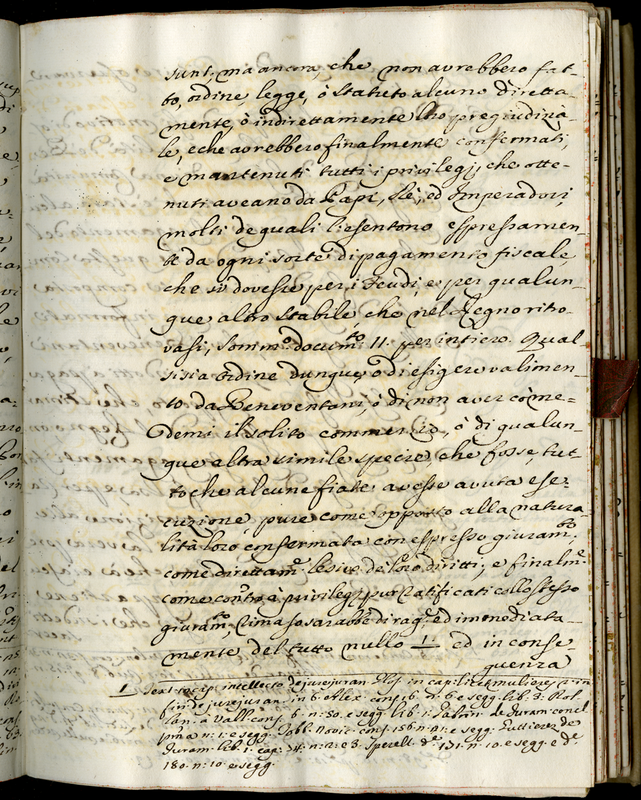 sunt, ma ancora, che non avrebbero fat-
to, ordine, legge, ò statuto alcuno diretta-
mente, ò indirettamente loro pregiudizia-
le, e che avrebbero finalmente confermati,
e mantenuti tutti i privilegj, che otte-
nuti aveano da Papi, Rè, ed Imperadori
molti de quali l'esentono espressamen-
te da ogni sorte di pagamento fiscale,
che si dovesse per i Feudi, e per qualun-
que altro stabile che nel Regno ritro-
vasi, Somm.o docum.to 11. per intiero. Qual
sisia ordine dunque, ò di esigere valimen-
to da Beneventani, ò di non aver co' me-
demi il solito commercio, ò di qualun-
que altra simile specie, che fosse, tut-
toche alcune fiate avesse avuta ese-
cuzione, pure come opposto alla natura-
lità loro confermata con espresso giuram.to
come direttam.e lesivo de loro diritti, e finalm.e
come contro a privilegj pur ratificati collo stesso
giuram.to, rimaso sarebbe di rag.e, ed immediata-
mente del tutto nullo 1. ed in conse-
guenza
1 Text. in cap. intellecto de jurejuran. Glos. in cap. licet mulieres in
fin de jurejuran. in 6. Alex. cons. 6. n. 6. e segg. lib. 3. Rol-
lan. a Vall. cons. 6. n. 50. e segg. lib. 1.
n. 1. e segg. cons. 156. n. 91. e segg. Guttierez de
Juram. lib. 1. cap. n. 2. e 3. Sperell. de. 131. n. 10. e segg. e de.
180. n. 10. e segg.